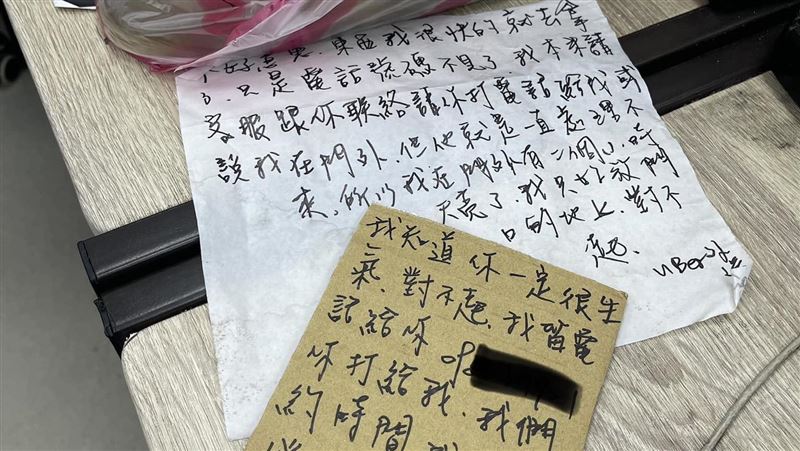 不好意思.東西我很快的就去拿
了.只是電話號碼不見了.我本來請
客服跟你聯絡請你打電話給我或
說我在門外.但他就是一直處理不
來,所以我在門外有二個小時
天亮了.我只好放門
口的地上.對不
起.
uber
我知道你一定很生
氣.對不起.我留電
話給你
你打給我.我們
約時間